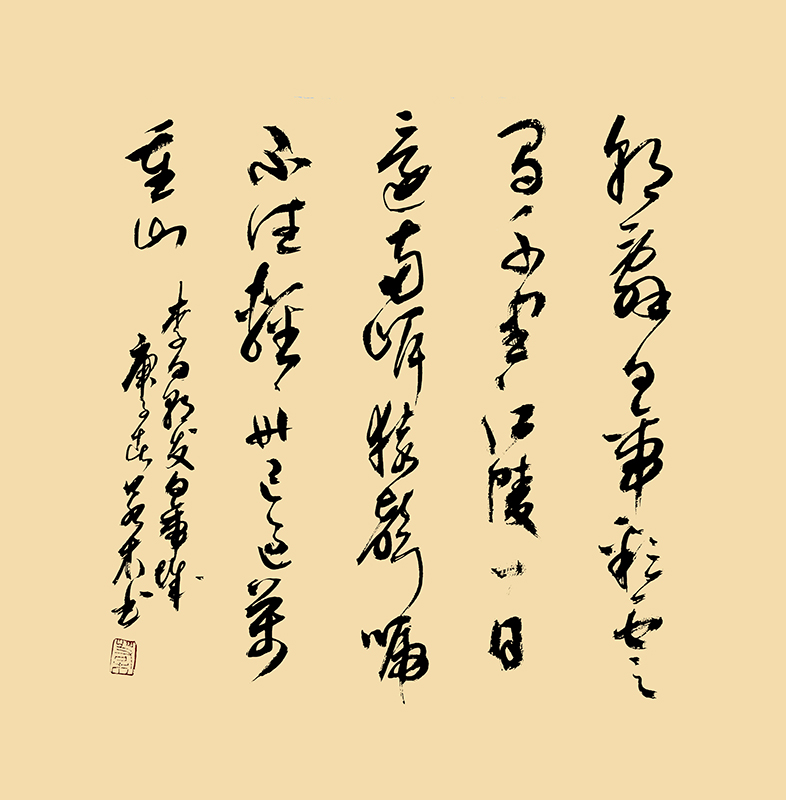 朝辭白帝彩雲
間千里江陵一日
還兩岸猿聲啼
不住輕舟已過萬
重山
李白朝发白帝城
庚子春若木书